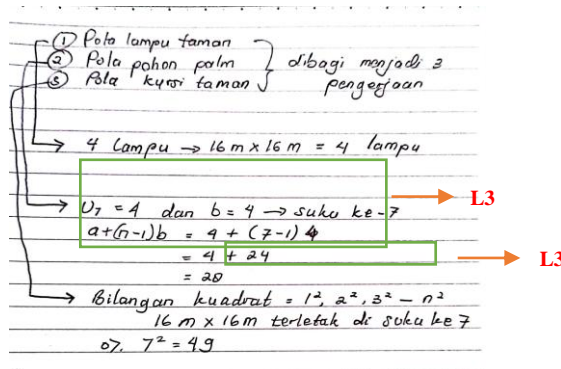 ① Pola lampu taman
② Pola pohon palm
③ Pola kursi taman
dibagi menjadi 3
pengerjaan
4 Lampu → 16 m x 16 m = 4 lampu
L3
U7 = 4 dan b = 4 → suku ke-7
a+(n-1)b = 4 + (7-1) 4
= 4 + 24
L3
= 28
Bilangan kuadrat = 1², 2², 3² – n²
16 m x 16 m terletak di suku ke 7
7² = 49